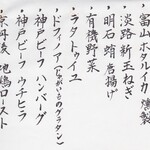 ・富山ホタルイカ燻製
・淡路新玉ねぎ
・明石蛸唐揚げ
・有機野菜
・ラタトゥイユ
・ドフィノア(じゃがいものグラタン)
・神戸ビーフ ハンバーグ
・神戸ビーフ ウチヒラ
京丹波 地鶏ロースト